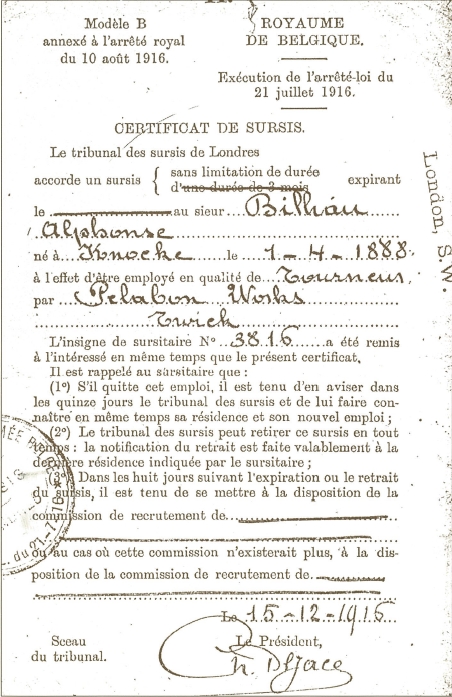 Modèle B
annexé à l'arrêté royal
du 10 août 1916.
ROYAUME
DE BELGIQUE.
Exécution de l'arrêté-loi du
21 juillet 1916.
CERTIFICAT DE SURSIS.
Le tribunal des sursis de Londres
accorde un sursis { sans limitation de durée
d'une durée de 3 mois expirant
le au sieur Bilhau
Alphonse
né à Knocke le 1-4-1888
à l'effet d'être employé en qualité de Tourneur
par Pelabon Works
Twick
L'insigne de sursitaire N° 3816 a été remis
à l'intéressé en même temps que le présent certificat.
Il est rappelé au sursitaire que :
(1°) S'il quitte cet emploi, il est tenu d'en aviser dans
les quinze jours le tribunal des sursis et de lui faire con-
naître en même temps sa résidence et son nouvel emploi ;
(2°) Le tribunal des sursis peut retirer ce sursis en tout
temps : la notification du retrait est faite valablement à la
dernière résidence indiquée par le sursitaire ;
(3°) Dans les huit jours suivant l'expiration ou le retrait
du sursis, il est tenu de se mettre à la disposition de la
commission de recrutement de
ou au cas où cette commission n'existerait plus, à la dis-
position de la commission de recrutement de
Le 15-12-1916
Sceau
du tribunal.
Le Président,
London, S.W.